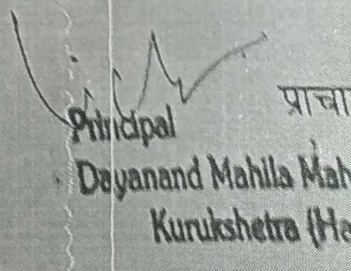 Principal
प्राचा
Dayanand Mahila Mah
Kurukshetra (Ha